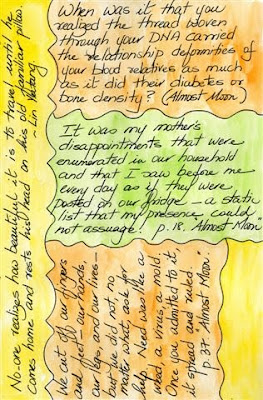 When was it that you
realized the thread woven
through your DNA carried
the relationship deformities of
your blood relatives as much
as it did their diabetes or
bone density? (Almost Moon)
It was my mother's
disappointments that were
enumerated in our household
and that I saw before me
every day as if they were
posted on our fridge – a static
list that my presence could
not assuage. p. 18, "Almost Moon"
No-one realizes how beautiful it is to travel until he
comes home and rests his head on his old familiar pillow.
- Lin Yutang
We cut off our fingers
and feet – our hands
our legs, and our lives –
but we did not, no
matter what, ask for
help. Need was like a
weed, a virus, a mold.
Once you admitted to it
it spread and ruled.
p. 37 "Almost Moon".